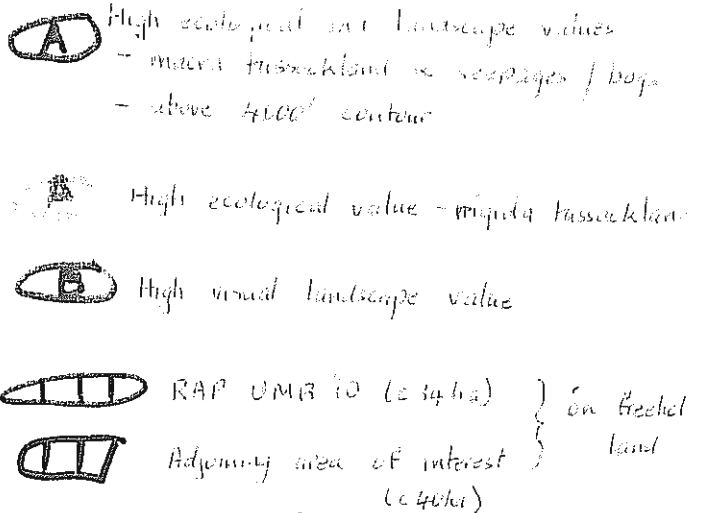 A High ecological and landscape values
- macra tussockland & seepages / bogs
- above 4000' contour
High ecological value - rigida tussockland
B High visual landscape value
RAP UMA 10 (c 34ha) } on freehold
Adjoining area of interest } land
(c 40ha)